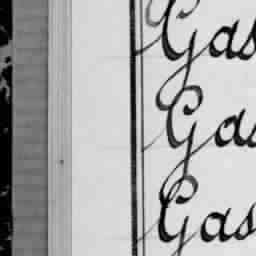 Gas
Gas
Gas